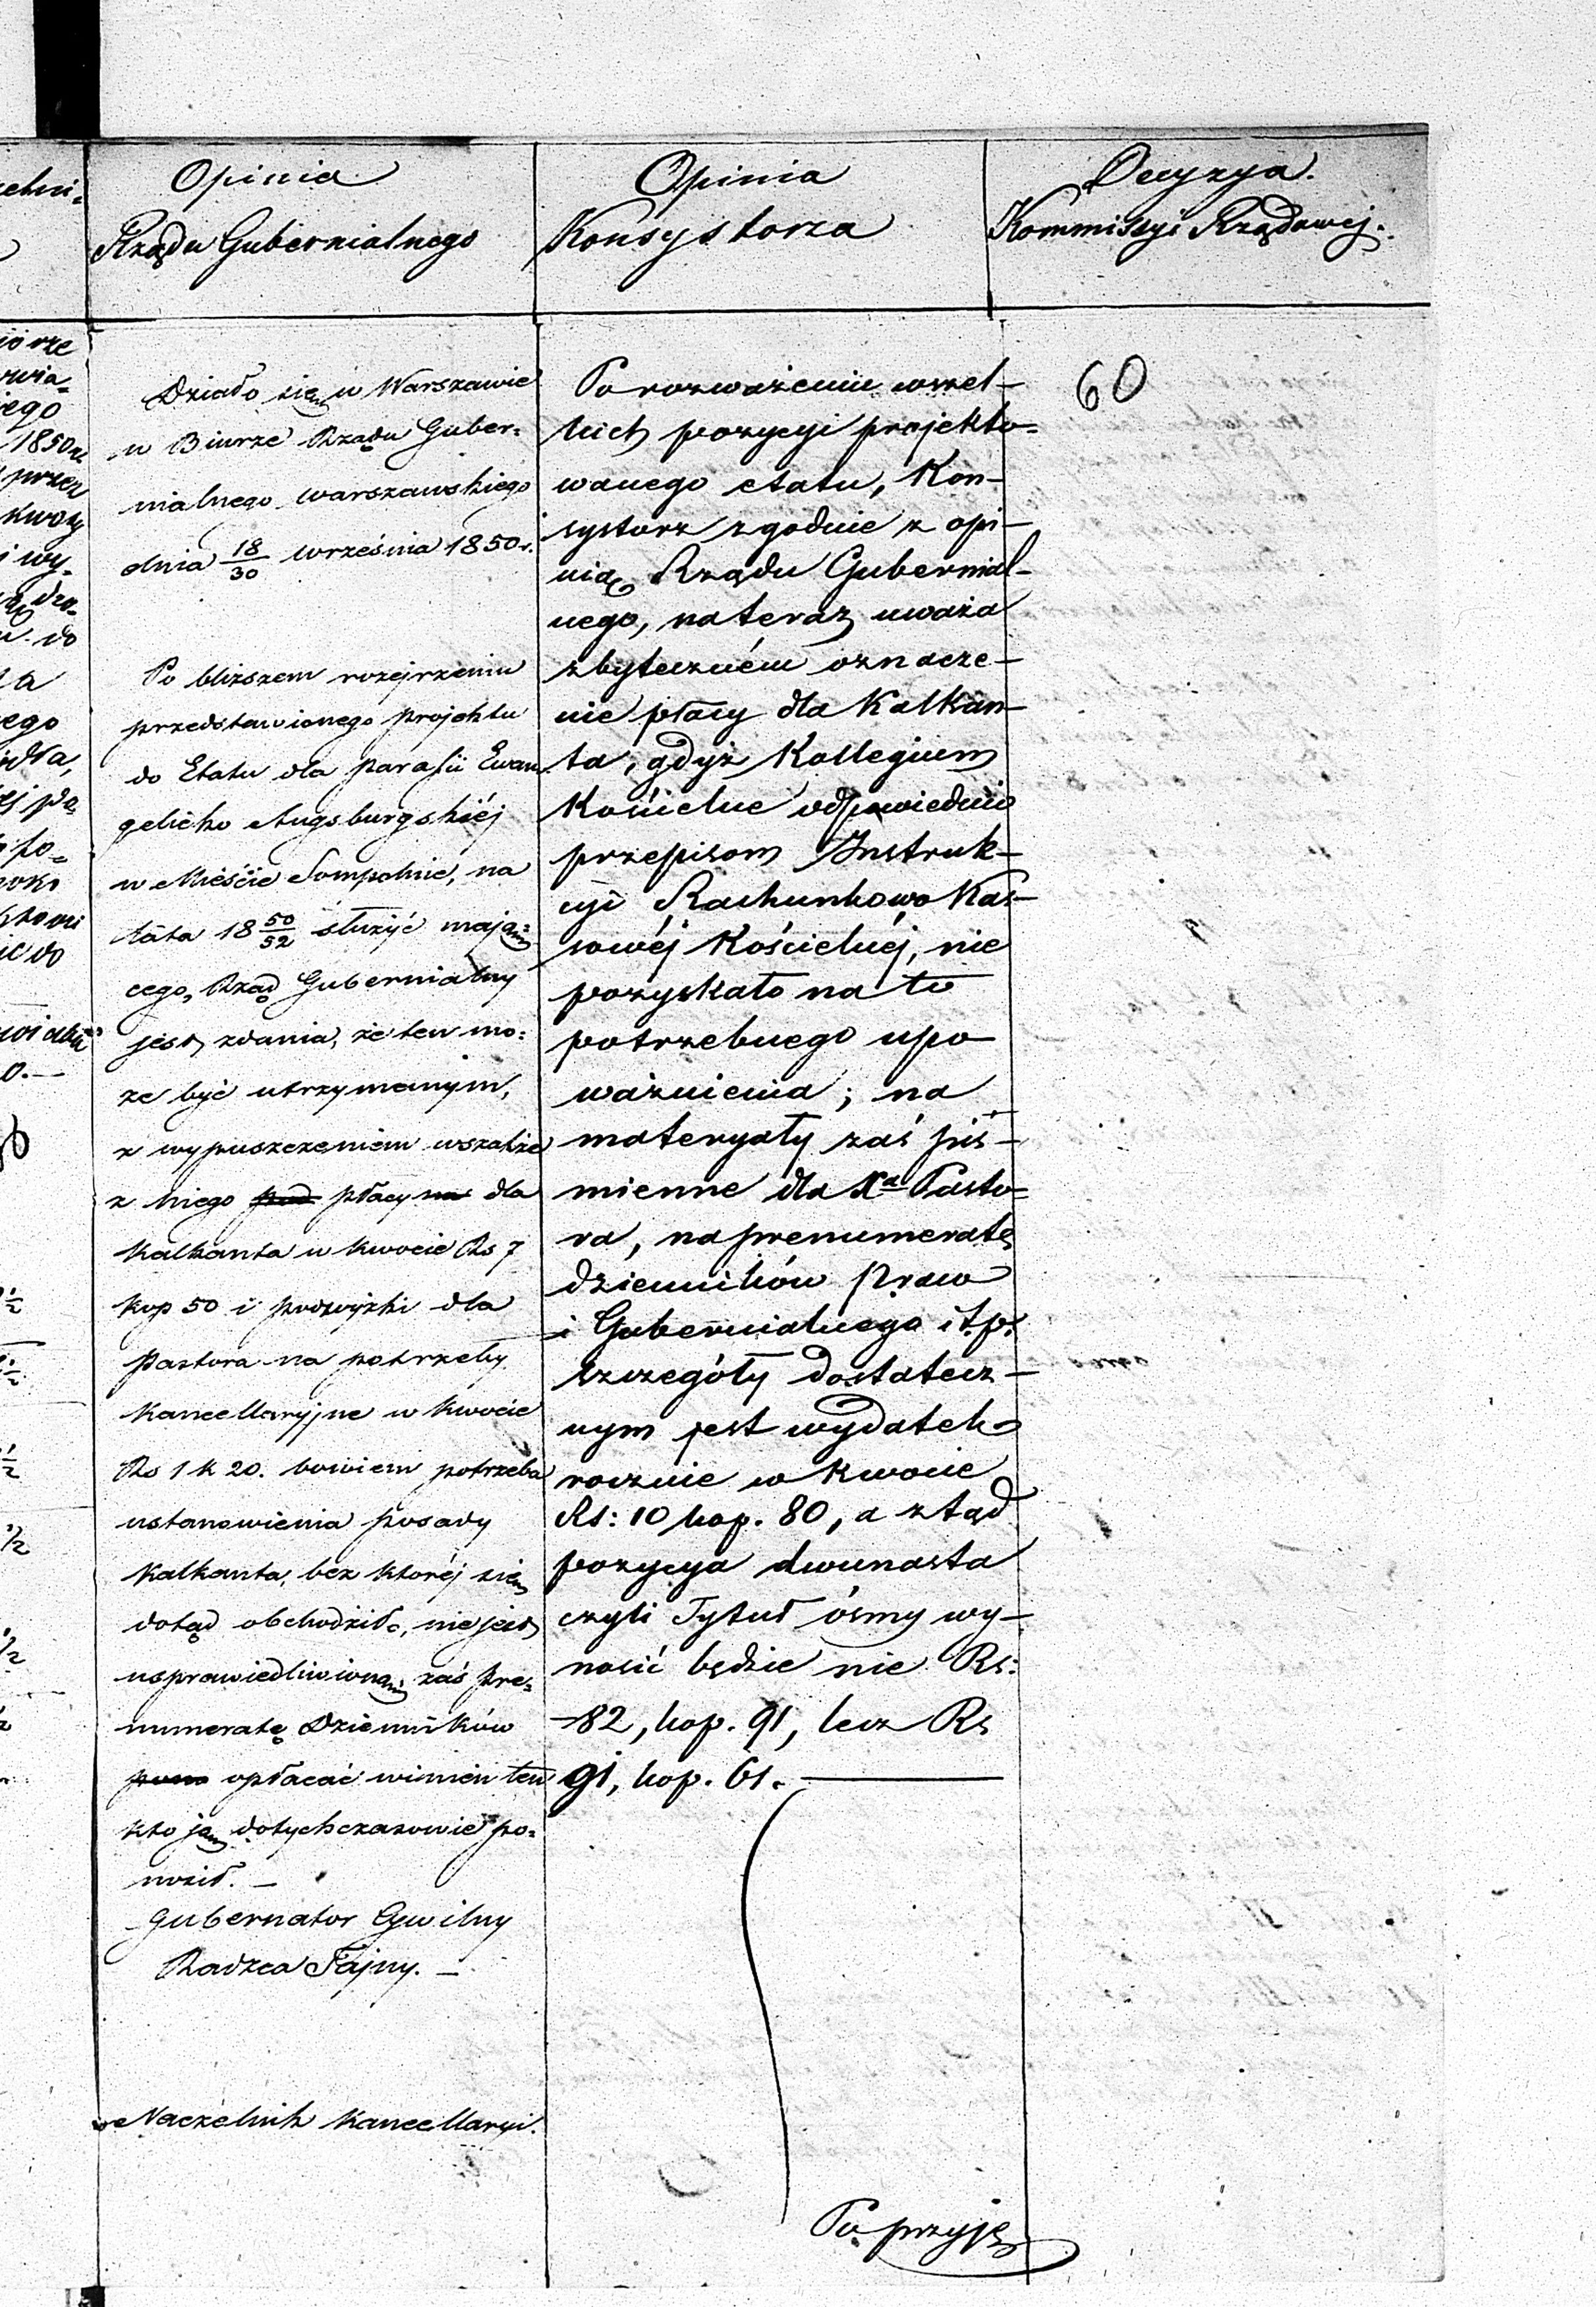 Opinia
Rządu Gubernialnego
Działo się w Warszawie
w Biurze Rządu Guber=
nialnego warszawskiego
dnia 18/30 września 1850 r.
Po bliższem rozejrzeniu
przedstawionego projektu
do Etatu dla parafii Ewan
gelicko Augsburgskiéj
w Mieście Sompolnie, na
lata 18 50/52 służyć mają=
cego, Rząd Gubernialny
jest zdania, że ten mo=
że być utrzymanym,
z wypuszczeniem wszakże
z niego płacy dla
Kalkanta w kwocie Rs 7
kop 50 i podwyżki dla
Pastora na potrzeby
Kancellaryjne w kwocie
Rs 1 k 20. bowiem potrzeba
ustanowienia posady
Kalkanta, bez któréj się
dotąd obchodziło, nie jest
usprawiedliwioną zaś pre=
numeratę Dzienników
opłacać winien ten
kto ją dotychczasowie po=
nosił. —
Gubernator Cywilny
Radzca Tajny. —
Naczelnik Kancellaryi.
Opinia
Konsystorza
Po rozważeniu wszel-
kich pozycyi projekto=
wanego etatu, Kon-
systorz zgodnie z opi-
nią Rządu Gubernial-
nego, na teraz uważa
zbyteczném oznacze-
nie płacy dla Kalkan-
ta, gdyż Kollegium
Kościelne odpowiednio
przepisom Instruk-
cyi Rachunkowo Kas-
sowéj Kościelnéj, nie
pozyskało na to
potrzebnego upo
ważnienia; na
materyały zaś piś-
mienne dla Xa Pasto=
ra, na prenumeratę
dzienników Praw
i Gubernialnego i t. p.
szczegóły dostatecz-
nym jest wydatek
rocznie w kwocie
Rs: 10 kop. 80, a ztąd
pozycya dwunasta
czyli Tytuł ósmy wy-
nosić będzie nie Rs:
82, kop. 91, lecz Rs
91, kop. 61. —
Po przyję
Decyzya.
Kommissyi Rządowej.
60